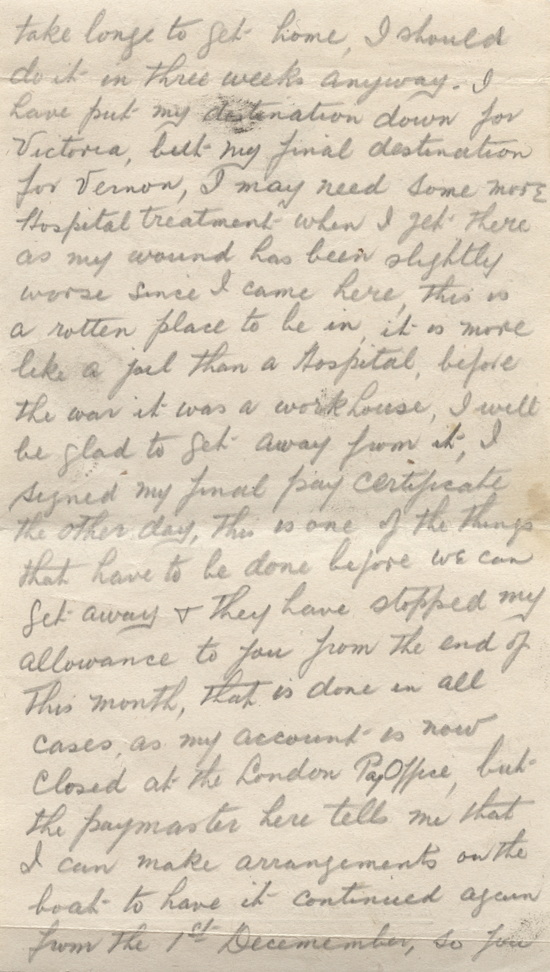 take long to get home, I should
do it in three weeks anyway. I
have put my destination down for
Victoria, but my final destination
for Vernon, I may need some more
Hospital treatment when I get there
as my wound has been slightly
worse since I came here, this is
a rotten place to be in, it is more
like a jail than a Hospital, before
the war it was a workhouse, I will
be glad to get away from it, I
signed my final pay certificate
the other day, this is one of the things
that have to be done before we can
get away & they have stopped my
allowance to you from the end of
this month, that is done in all
cases, as my account is now
closed at the London Pay Office, but
the paymaster here tells me that
I can make arrangements on the
boat to have it continued again
from the 1st Decemember, so you